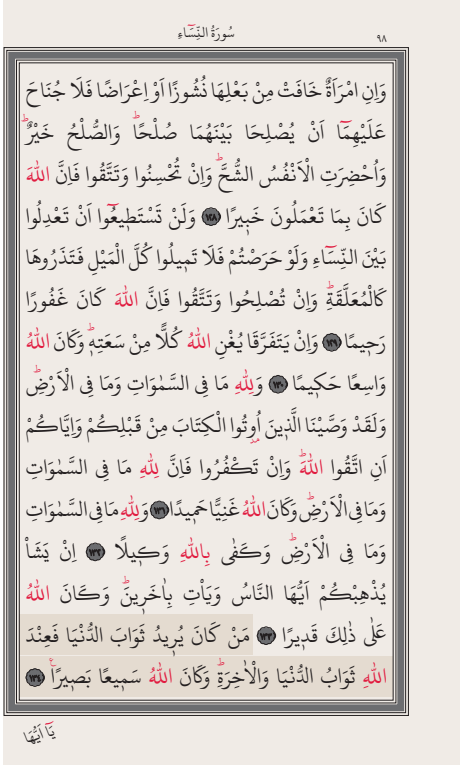 سُورَةُ النِّسَٓاءِ
٩٨
وَاِنِ امْرَاَةٌ خَافَتْ مِنْ بَعْلِهَا نُشُوزًا اَوْ اِعْرَاضًا فَلَا جُنَاحَ
عَلَيْهِمَٓا اَنْ يُصْلِحَا بَيْنَهُمَا صُلْحًاۜ وَالصُّلْحُ خَيْرٌۜ
وَاُحْضِرَتِ الْاَنْفُسُ الشُّحَّۜ وَاِنْ تُحْسِنُوا وَتَتَّقُوا فَاِنَّ اللّٰهَ
كَانَ بِمَا تَعْمَلُونَ خَبٖيرًا ﴿١٢٨﴾ وَلَنْ تَسْتَطٖيعُٓوا اَنْ تَعْدِلُوا
بَيْنَ النِّسَٓاءِ وَلَوْ حَرَصْتُمْ فَلَا تَمٖيلُوا كُلَّ الْمَيْلِ فَتَذَرُوهَا
كَالْمُعَلَّقَةِۜ وَاِنْ تُصْلِحُوا وَتَتَّقُوا فَاِنَّ اللّٰهَ كَانَ غَفُورًا
رَحٖيمًا ﴿١٢٩﴾ وَاِنْ يَتَفَرَّقَا يُغْنِ اللّٰهُ كُلًّا مِنْ سَعَتِهٖۜ وَكَانَ اللّٰهُ
وَاسِعًا حَكٖيمًا ﴿١٣٠﴾ وَلِلّٰهِ مَا فِي السَّمٰوَاتِ وَمَا فِي الْاَرْضِۜ
وَلَقَدْ وَصَّيْنَا الَّذٖينَ اُو۫تُوا الْكِتَابَ مِنْ قَبْلِكُمْ وَاِيَّاكُمْ
اَنِ اتَّقُوا اللّٰهَۜ وَاِنْ تَكْفُرُوا فَاِنَّ لِلّٰهِ مَا فِي السَّمٰوَاتِ
وَمَا فِي الْاَرْضِۜ وَكَانَ اللّٰهُ غَنِيًّا حَمٖيدًا ﴿١٣١﴾ وَلِلّٰهِ مَا فِي السَّمٰوَاتِ
وَمَا فِي الْاَرْضِۜ وَكَفٰى بِاللّٰهِ وَكٖيلًا ﴿١٣٢﴾ اِنْ يَشَأْ
يُذْهِبْكُمْ اَيُّهَا النَّاسُ وَيَأْتِ بِاٰخَرٖينَۜ وَكَانَ اللّٰهُ
عَلٰى ذٰلِكَ قَدٖيرًا ﴿١٣٣﴾ مَنْ كَانَ يُرٖيدُ ثَوَابَ الدُّنْيَا فَعِنْدَ
اللّٰهِ ثَوَابُ الدُّنْيَا وَالْاٰخِرَةِۜ وَكَانَ اللّٰهُ سَمٖيعًا بَصٖيرًا ﴿١٣٤﴾
يَٓا اَيُّهَا